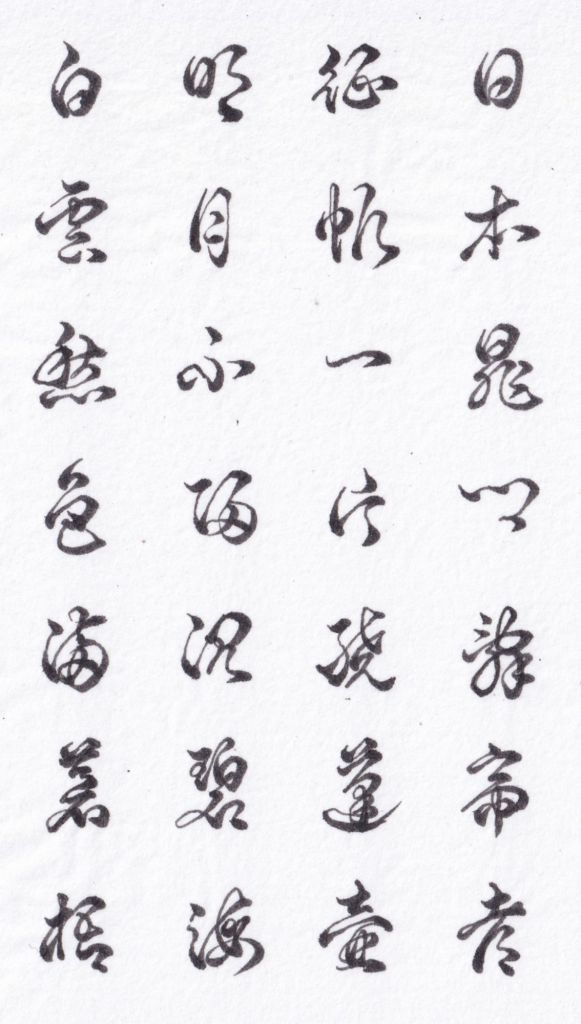 日本晁卿辞帝都
征帆一片繞蓬壷
明月不帰沈碧海
白雲愁色満蒼梧